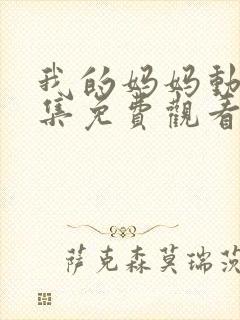 我的妈妈動
集免費觀看
萨克森莫瑞茨